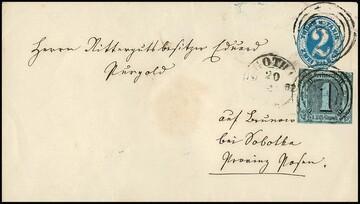 Herrn Rittergutsbesitzer Eduard
Purgold
auf Brunow
bei Sobotka
Provinz Posen.
2
GOTHA
20
62
1